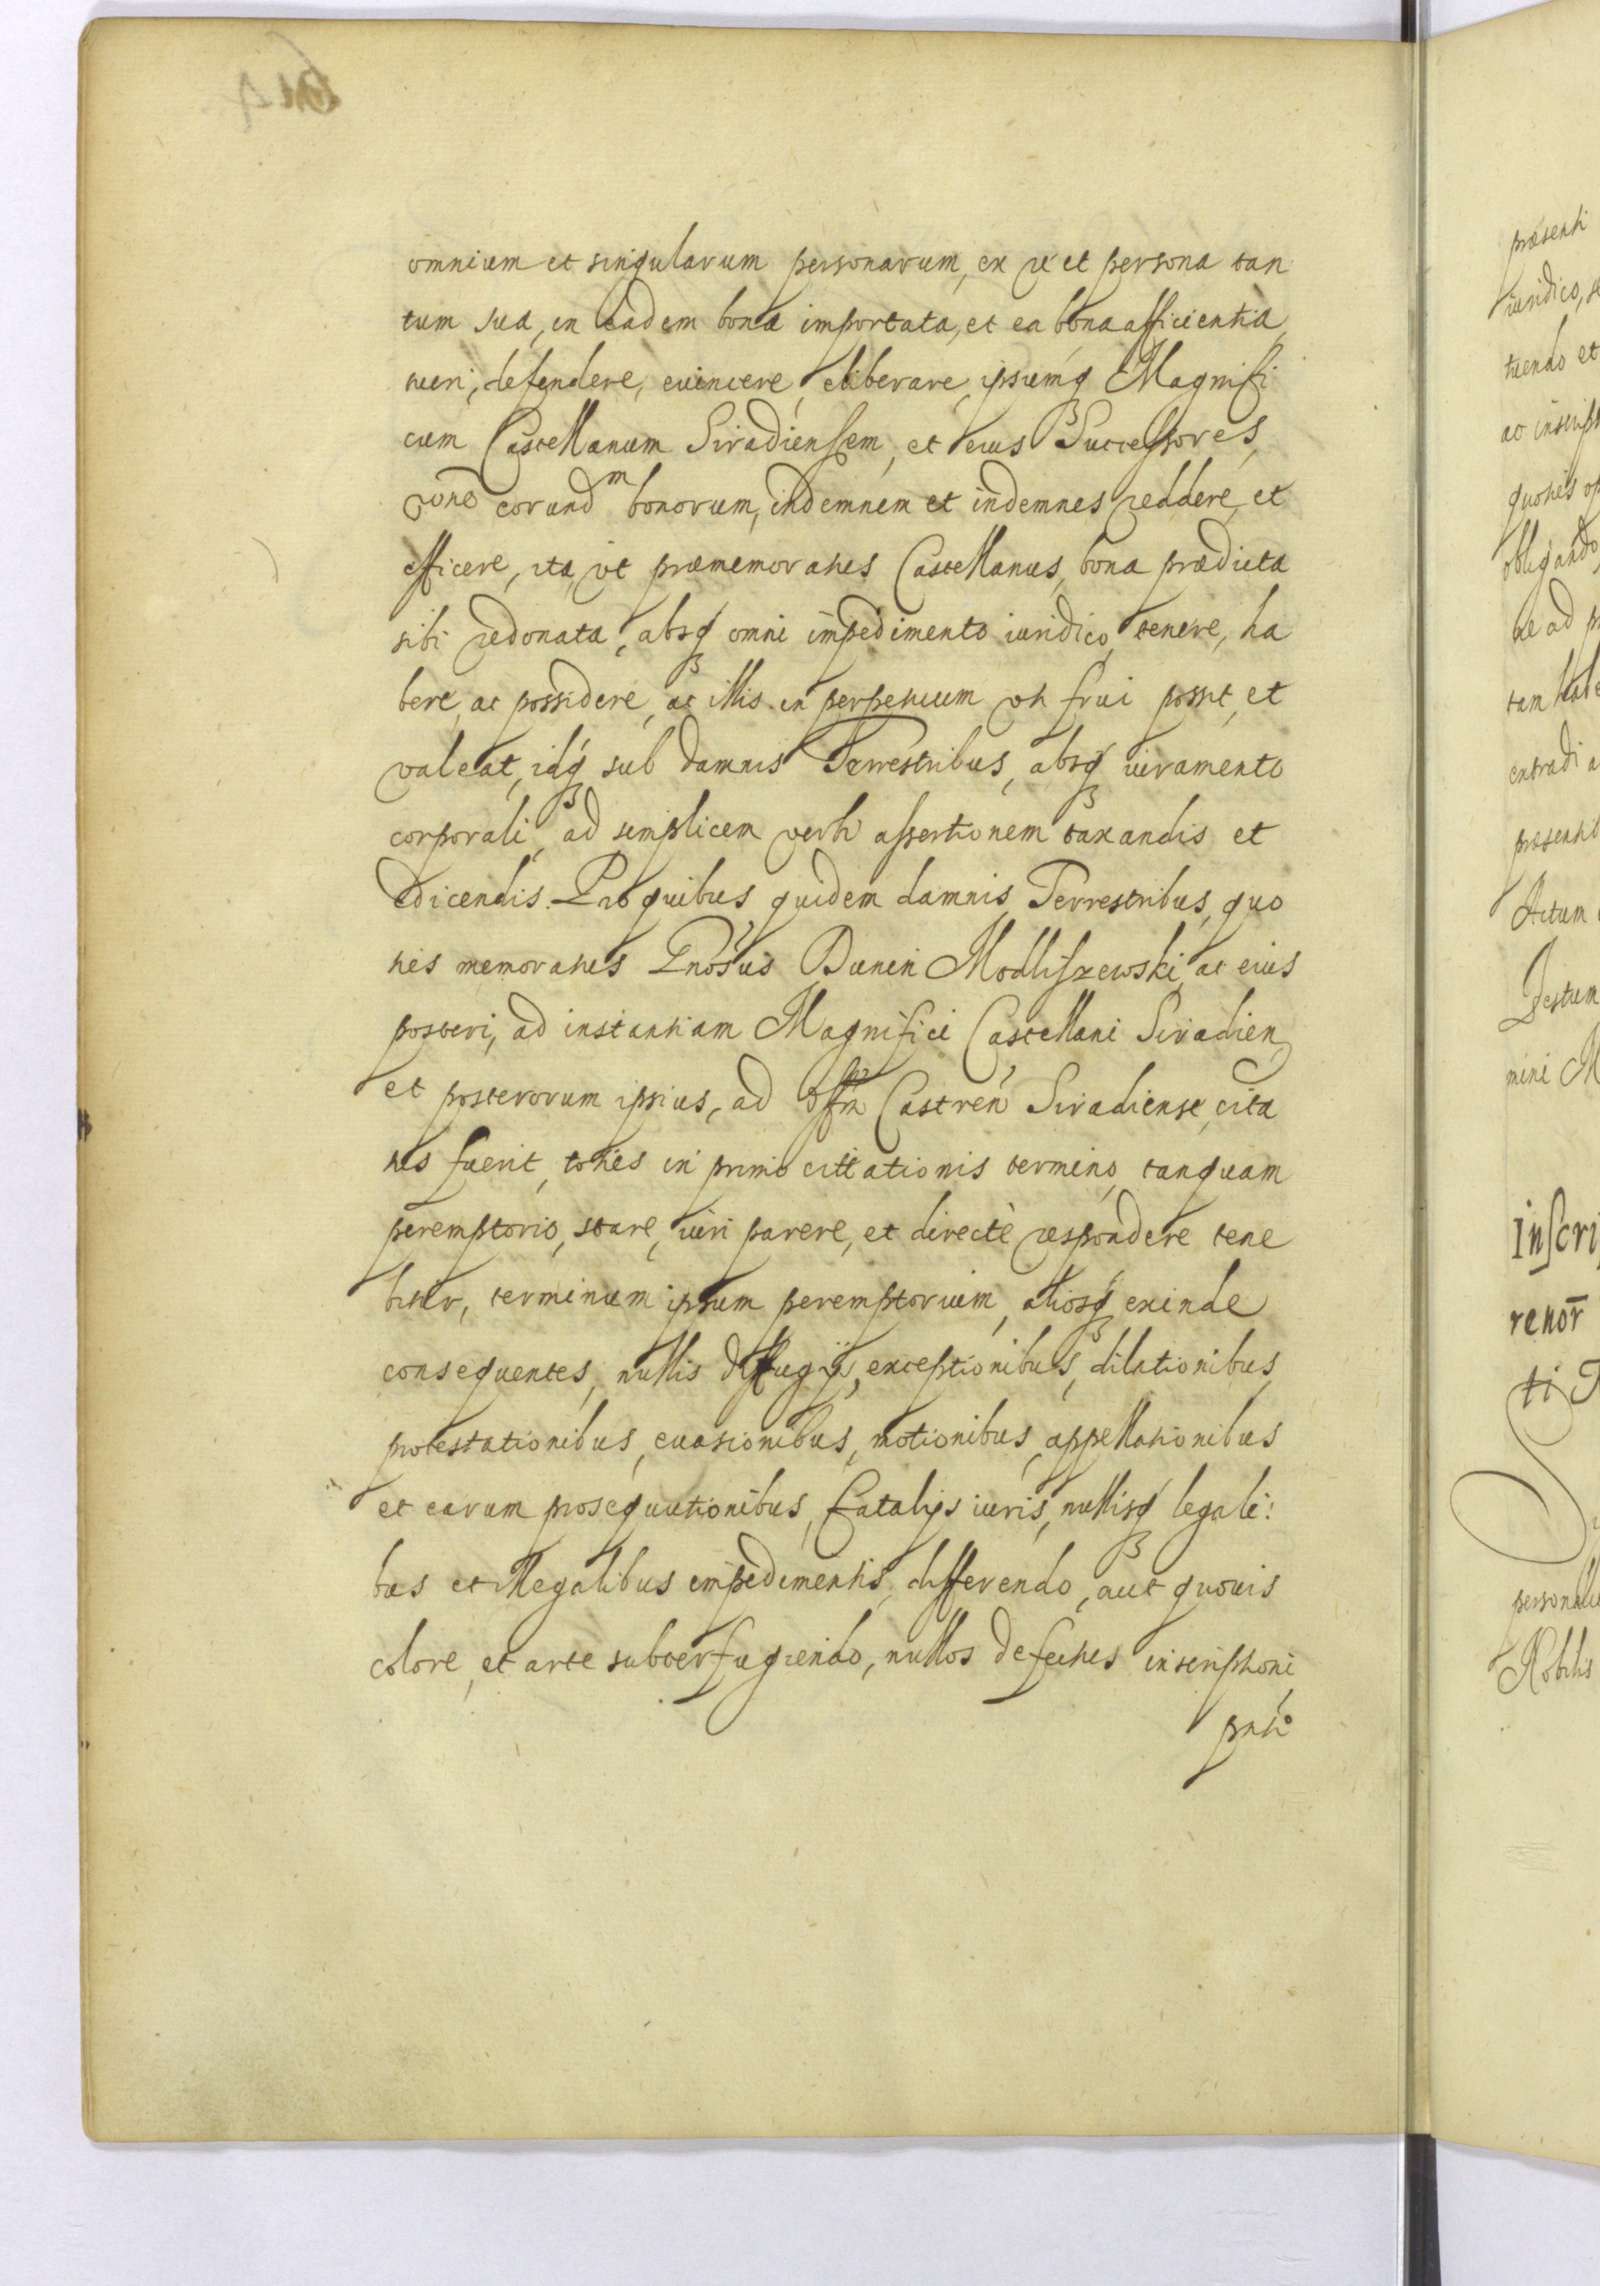 omnium et singularum personarum, ex re et persona tan
tum sua, in eadem bona importata, et ea bona afficientia,
tueri, defendere, euincere, eliberare, ipsumq3 Magnifi
cum Castellanum Siradiensem, et eius Successores,
rone eorundm bonorum, indemnem et indemnes reddere, et
efficere, ita vt præmemoratus Castellanus, bona prædicta
sibi redonata, absq3 omni impedimento iuridico, tenere, ha
bere, ac possidere, ac illis in perpetuum vti frui possit, et
valeat, idq3 sub damnis Terrestribus, absq3 iuramento
corporali, ad simplicem verbi assertionem taxandis et
edicendis. Pro quibus quidem damnis Terrestribus, quo
ties memoratus Gnosus Dunin Modliszewski, ac eius
posteri, ad instantiam Magnifici Castellani Siradien,
et posterorum ipsius, ad offm Castren Siradiense, cita
tus fuerit, toties in primo citationis termino, tanquam
peremptorio, stare, iuri parere, et directè respondere tene
bitur, terminum ipsum peremptorium, aliosq3 exinde
consequentes, nullis diffugijs, exceptionibus, dilationibus,
protestationibus, euasionibus, motionibus, appellationibus
et earum prosequutionibus, fatalijs iuris, nullisq3 legali:
bus et illegalibus impedimentis, differendo, aut quouis
colore, et arte subterfugiendo, nullos defectus inscriptioni
pnti